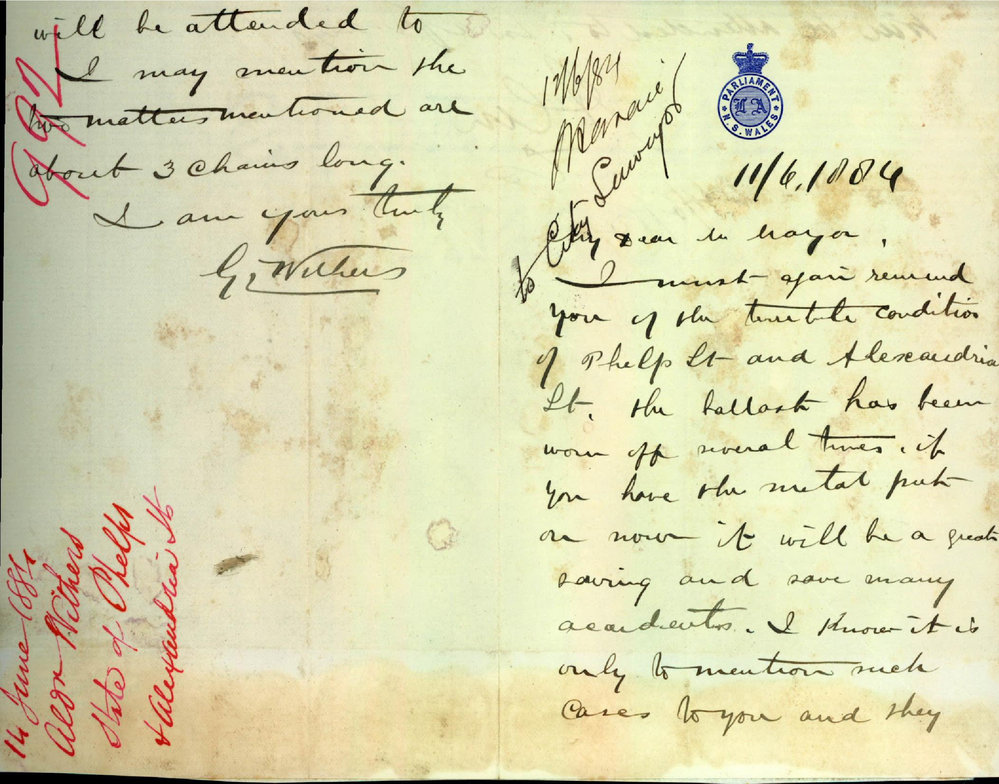 PARLIAMENT
L A
N.S. WALES
11/6.1884
My Dear Mr Mayor,
I must again remind
you of the terrible condition
of Phelps St and Alexandria
St, the ballast has been
worn off several times. if
you have the metal put
on now it will be a great
saving and save many
accidents. I know it is
only to mention such
cases to you and they
will be attended to
I may mention the
two matters mentioned are
about 3 chains long.
I am yours truly
G, Withers
12/6/84
to City Surveyor
992
14 June 1884
Aldr Withers
State of Phelps
& Alexandria St